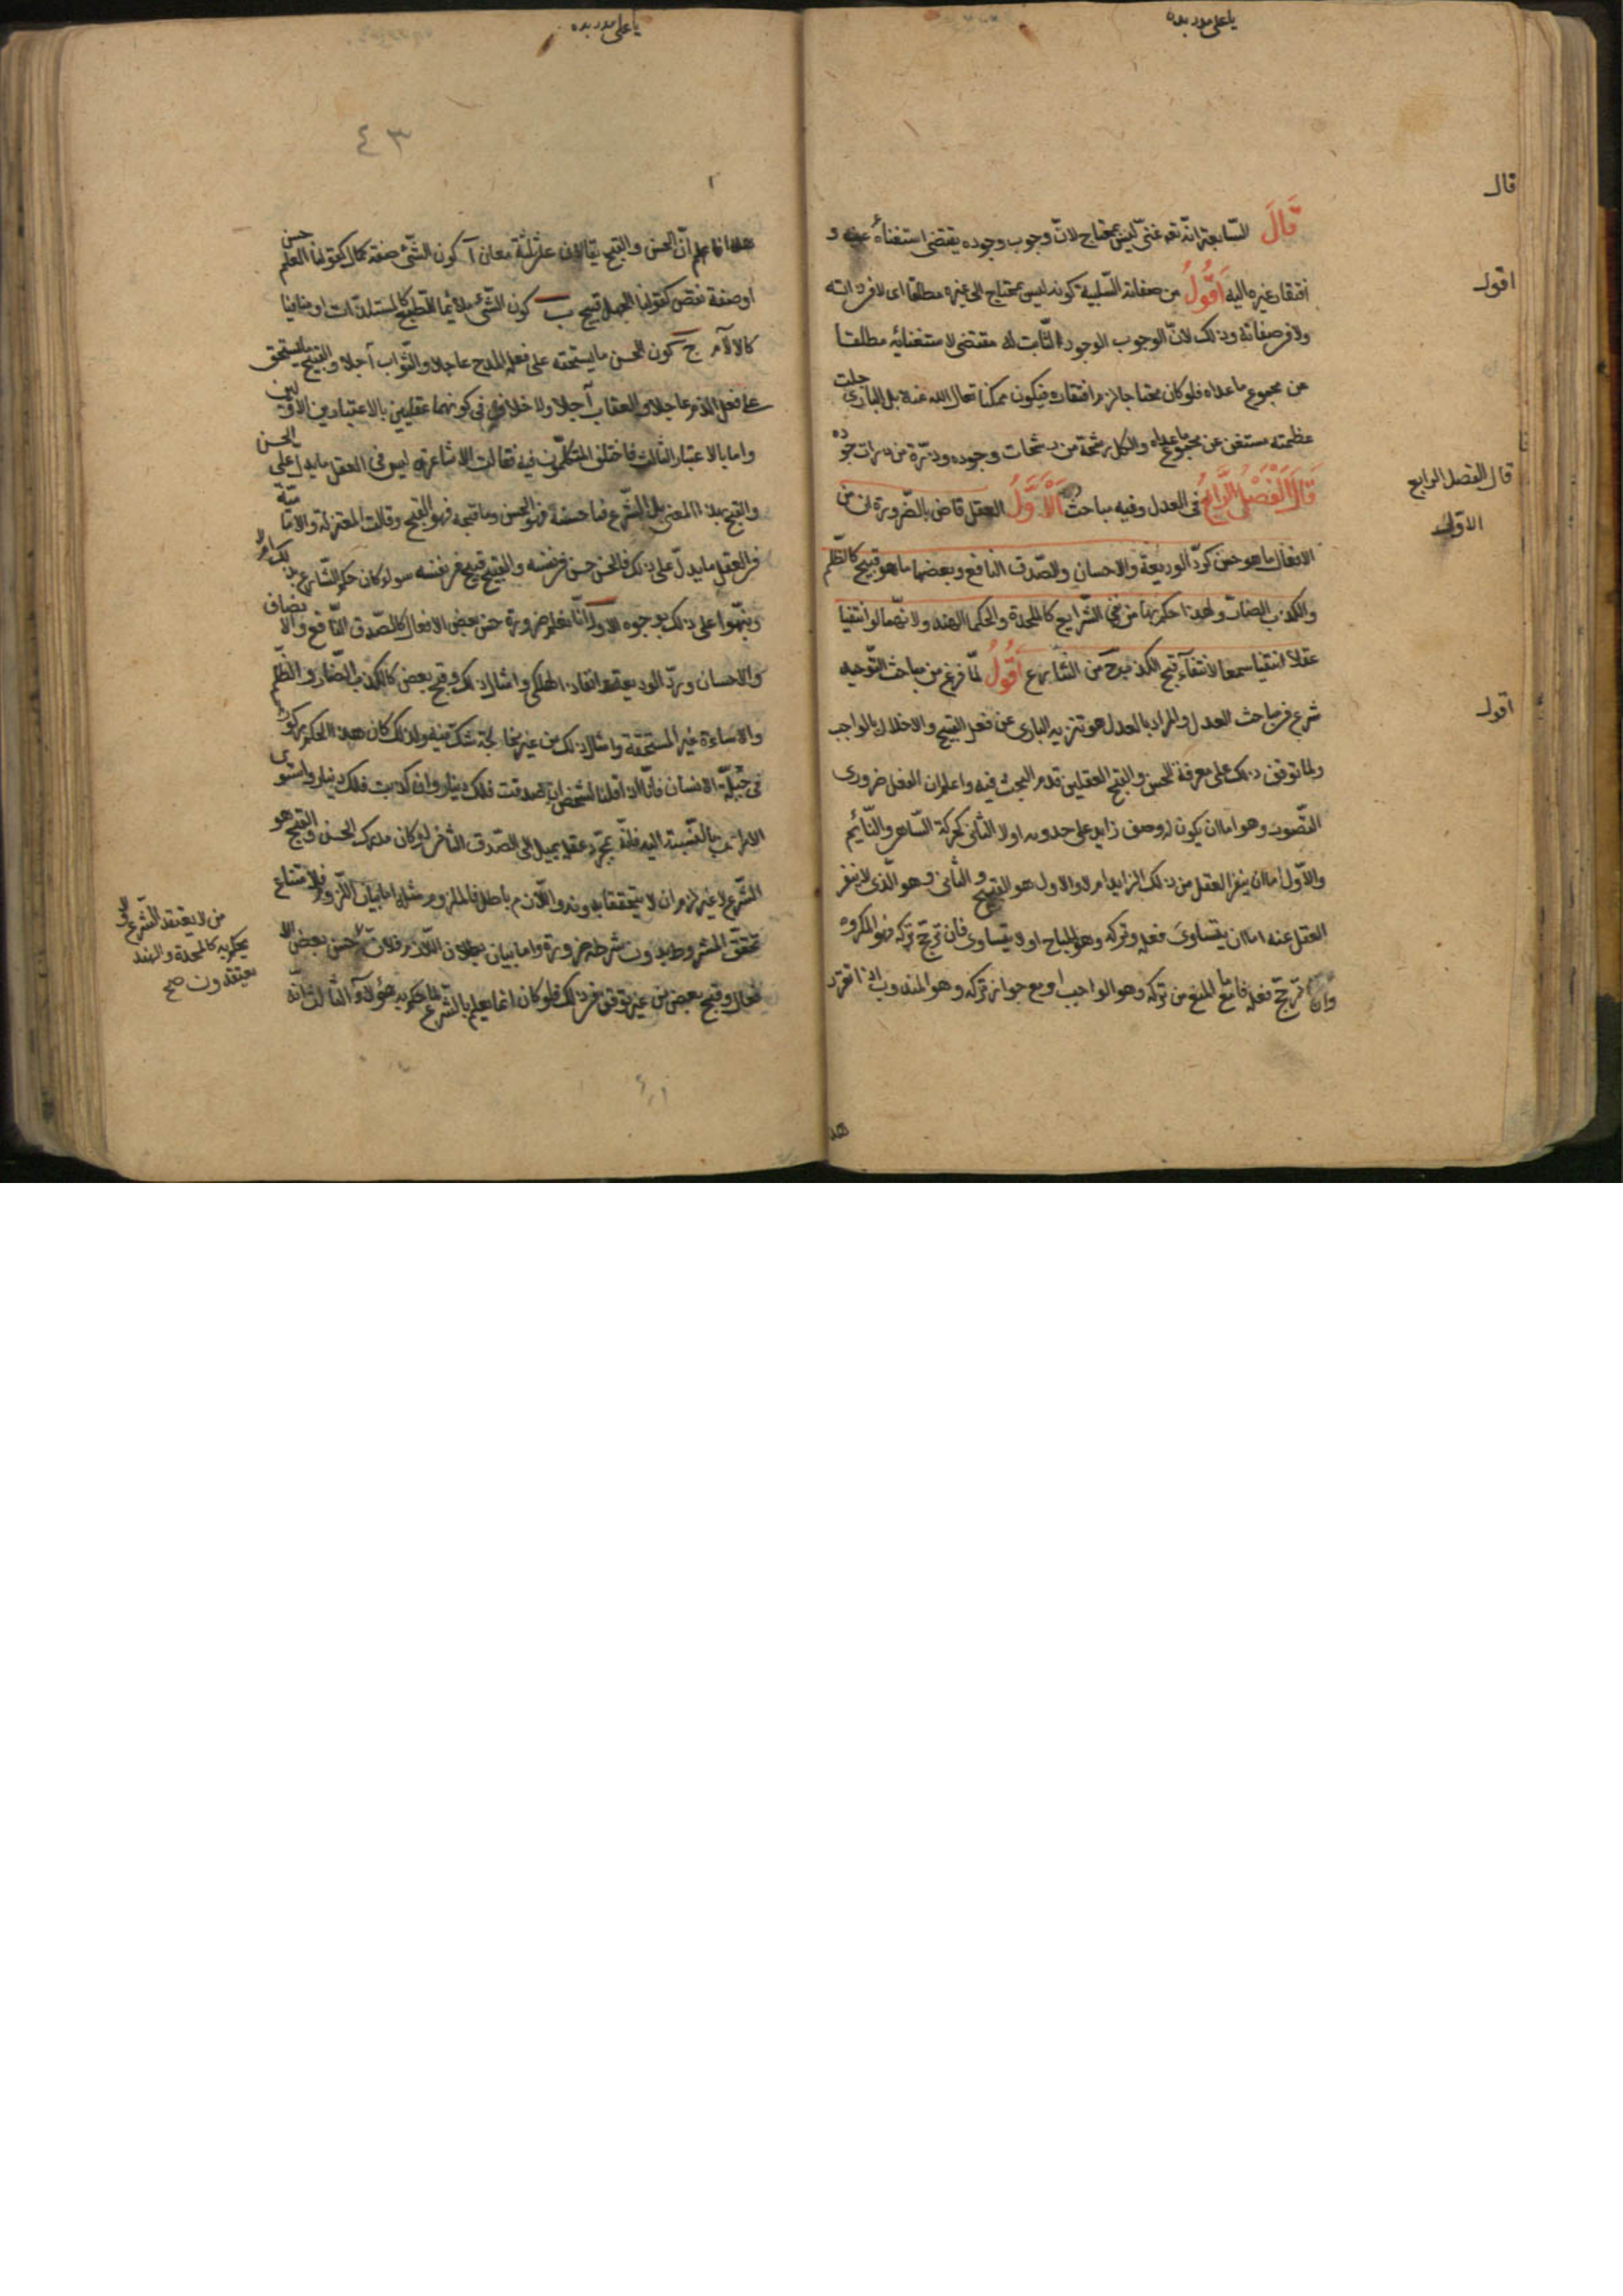 يا على مدد بده
قال
قَالَ السّابعة انّه تعه غنىّ ليس بمحتاج لانّ وجوب وجوده يقتضى استغناءه عنه و
اقول
افتقار غيره اليه اَقُولُ من صفاته السّلبية كونه ليس بمحتاج الى غيره مطلقا اى لا فى ذاته
ولا فى صفاته وذلك لانّ الوجوب الوجود الثّابت له مقتضى لاستغنائه مطلقا
عن مجموع ما عداه فلو كان محتاجا لزم افتقاره فيكون ممكنا تعالى الله عنه بل البارى جلت
عظمته مستغن عن مجموع ما عداه والكل رشحة من رشحات وجوده وذرّة من ذرات جوده
قال الفصل الرابع
الاوّل
قَالَ اَلْفَصْلُ الرَّابِعُ فى العدل وفيه مباحث اَلْاَوَّلُ العقل قاض بالضّرورة ان من
الافعال ما هو حسن كردّ الوديعة والاحسان والصّدق النافع وبعضها ما هو قبيح كالظّلم
والكذب الضارّ ولهذا حكم بهما من نفى الشّرايع كالملحدة والحكما الهند ولانّهما لو انتفيا
عقلا انتفيا سمعا لانتفآء قبح الكذب ح من الشّارع اَقُولُ لمّا فرغ من مباحث التّوحيد
اقول
شرع فى مباحث العدل والمراد بالعدل هو تنزيه البارى عن فعل القبيح والاخلال بالواجب
ولما توقف ذلك على معرفة الحسن والقبح العقليين قدم البحث فيه واعلم ان الفعل ضرورى
التّصور وهو اما ان يكون له وصف زايد على حدوثه او لا الثانى كحركة السّاهى والنّائم
والاوّل اما ان ينفر العقل من ذلك الزايد ام لا والاول هو القبيح والثانى وهو الّذى لا ينفر
العقل عنه اما ان يتساوى فعله وتركه وهو المباح او لا يتساوى فان ترجّح تركه فهو المكروه
وان ترجّح فعله فامّا مع المنع من تركه وهو الواجب او مع جواز تركه وهو المندوب اذا تقرّر
هذا
يا على مدد بده
٤٣
هذا فاعلم انّ الحسن والقبح يقالان على ثلثة معان آ كون الشّئ صفة كمال كقولنا العلم حسن
او صفة نقص كقولنا الجهل قبيح ب كون الشّئ ملائما للطبع كالمستلذّات او منافيا
كالآلام ج كون الحسن ما يستحق على فعله المدح عاجلا والثّواب آجلا والقبيح ما يستحق
على فعل الذم عاجلا والعقاب آجلا ولا خلاف فى كونهما عقليين بالاعتبارين الاوّلين
واما بالاعتبار الثالث فاختلف المتكلّمون فيه فقالت الاشاعرة ليس فى العقل ما يدل على الحسن
والقبح بهذا المعنى بل الشّرع فما حسنه فهو الحسن وما قبحه فهو القبيح وقالت المعتزلة والاماميّة
فى العقل ما يدلّ على ذلك فالحسن حسن فى نفسه والقبيح قبيح فى نفسه سوا كان حكم الشّارع بذلك ام لا
ونبّهوا على ذلك بوجوه الاول انّا نعلم ضرورة حسن بعض الافعال كالصّدق النّافع والانصاف
والاحسان وردّ الوديعة وانقاذ الهلكى وامثال ذلك وقبح بعض كالكذب الضّار والظّلم
والاساءة غير المستحقة وامثال ذلك من غير مخالجة شك فيه ولذلك كان هذا الحكم مركوزا
فى جبلّة الانسان فانّا اذا قلنا لشخص ان صدقت فلك دينار وان كذبت فلك دينار واستوى
الامران بالنّسبة اليه فانّه بمجرّد عقله يميل الى الصّدق الثانى لو كان مدرك الحسن والقبح هو
الشّرع لا غير لزم ان لا يتحققا بدونه واللّازم باطل فالملزوم مثله امّا بيان اللّزوم فلامتناع
تحقّق المشروط بدون شرطه ضرورة واما بيان بطلان اللّازم فلانّ حسن بعض الا
فعال وقبح بعض من غير توقف فى ذلك فلو كان انما يعلم بالشّرع لما حكم به هؤلآء الثالث انّه
من لا يعتقد الشّرع
يحكم به كالملحدة والهند
يعتقدون صح